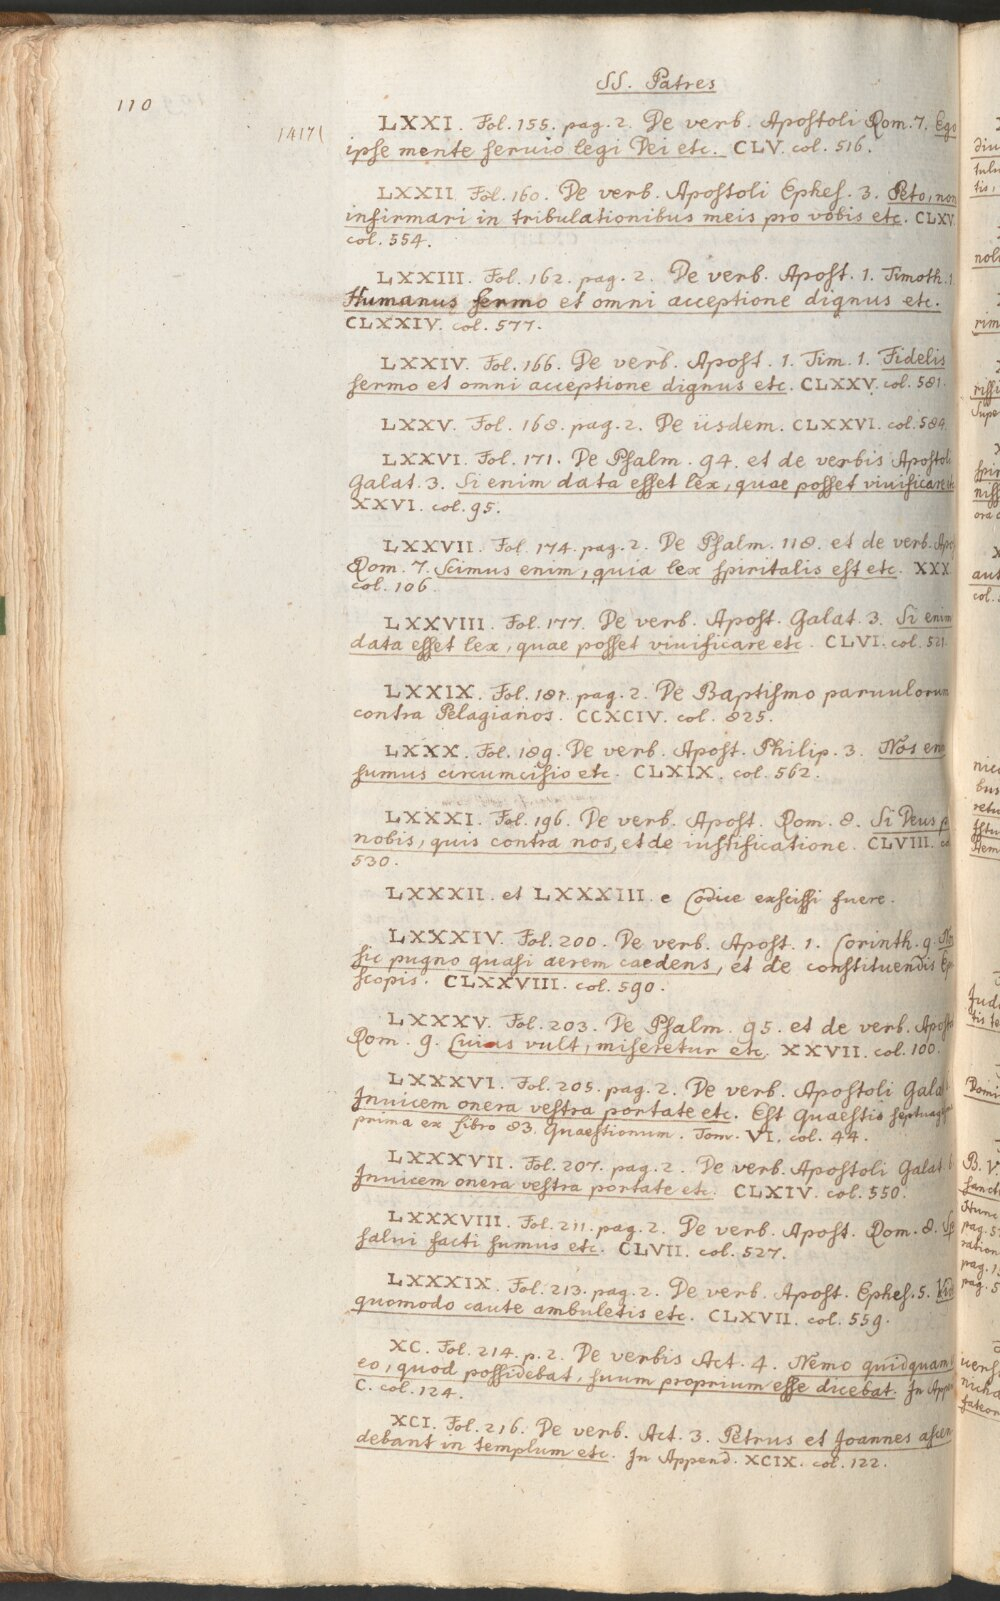 SS. Patres
110
1417(
LXXI. Fol. 155. pag. 2. De verb. Apostoli Rom. 7. Ego
ipse mente seruio legi Dei etc. CLV. col. 516.
LXXII Fol. 160. De verb. Apostoli Ephes. 3. Peto, non
infirmari in tribulationibus meis pro vobis etc. CLXV.
col. 554.
LXXIII. Fol. 162. pag. 2. De verb. Apost. 1. Timoth. 1.
Humanus sermo et omni acceptione dignus etc.
CLXXIV. col. 577.
LXXIV. Fol. 166. De verb. Apost. 1. Tim. 1. Fidelis
sermo et omni acceptione dignus etc. CLXXV. col. 581.
LXXV. Fol. 168. pag. 2. De iisdem. CLXXVI. col. 584.
LXXVI. Fol. 171. De Psalm. 94. et de verbis Apostoli
Galat. 3. Si enim data esset lex, quae posset viuificare etc
XXVI. col. 95.
LXXVII. Fol. 174. pag. 2. De Psalm. 118. et de verb. Apo
Rom. 7. Scimus enim, quia lex spiritalis est etc. XXX.
col. 106.
LXXVIII. Fol. 177. De verb. Apost. Galat. 3. Si enim
data esset lex, quae posset viuificare etc. CLVI. col. 521.
LXXIX. Fol. 181. pag. 2. De Baptismo paruulorum
contra Pelagianos. CCXCIV. col. 825.
LXXX. Fol. 189. De verb. Apost. Philip. 3. Nos eni
sumus circumcisio etc. CLXIX. col. 562.
LXXXI. Fol. 196. De verb. Apost. Rom. 8. Si Deus p
nobis, quis contra nos, et de iustificatione. CLVIII. co
530.
LXXXII. et LXXXIII. e Codice exscissi fuere.
LXXXIV. Fol. 200. De verb. Apost. 1. Corinth. 9. Non
sic pugno quasi aerem caedens, et de constituendis Epi
scopis. CLXXVIII. col. 590.
LXXXV. Fol. 203. De Psalm. 95. et de verb. Aposto
Rom. 9. Cuius vult, miseretur etc. XXVII. col. 100.
LXXXVI. Fol. 205. pag. 2. De verb. Apostoli Gala
Inuicem onera vestra portate etc. Est quaestio septuag
prima ex Libro 83. Quaestionum. Tom. VI. col. 44.
LXXXVII. Fol. 207. pag. 2. De verb. Apostoli Galat. 6
Inuicem onera vestra portate etc. CLXIV. col. 550.
LXXXVIII. Fol. 211. pag. 2. De verb. Apost. Rom. 8. Sp
salui facti sumus etc. CLVII. col. 527.
LXXXIX. Fol. 213. pag. 2. De verb. Apost. Ephes. 5. Vid
quomodo caute ambuletis etc. CLXVII. col. 559.
XC. Fol. 214. p. 2. De verbis Act. 4. Nemo quidquam
eo, quod possidebat, suum proprium esse dicebat. In Appen
C. col. 124.
XCI. Fol. 216. De verb. Act. 3. Petrus et Joannes ascen
debant in templum etc. In Append. XCIX. col. 122.